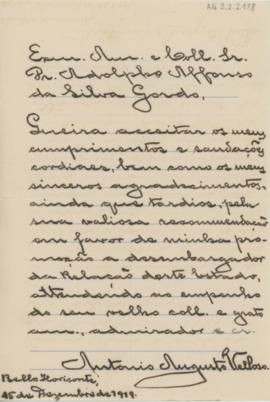 AG 2.2.2.178
Exm. Am. e Coll. Sr.
Dr. Adolpho Affonso
da Silva Gordo.
Queira acceitar os meus
cumprimentos e saudações
cordiaes, bem como os meus
sinceros agradecimentos,
ainda que tardios, pela
sua valiosa recommendação
em favor de minha pro-
moção a desembargador
da Relação deste Estado,
attendendo ao empenho
do seu velho coll. e grato
am., admirador e cr.
Antonio Augusto Velloso.
Bello Horizonte,
15 de Dezembro de 1919.